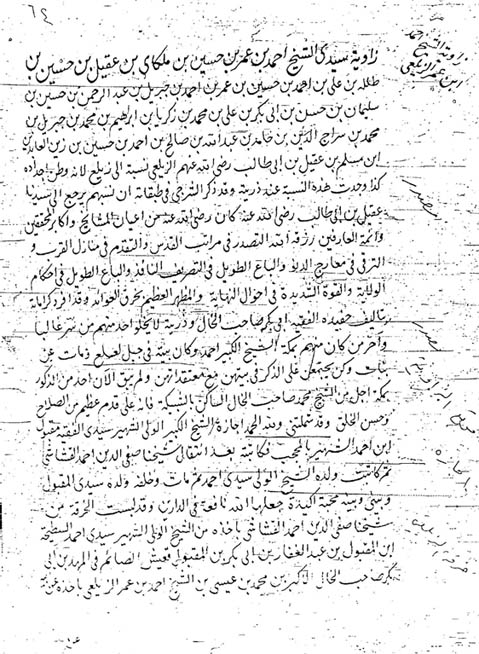 ٦٤
زاوية الشيخ احمد
ابن عمر الزيلعي
زاوية سيدى الشيخ احمد بن عمر بن حسين بن ملكاي بن عقيل بن حسين بن
طلحه بن على بن احمد بن حسين بن عمر بن احمد بن جبريل بن عبد الرحمن بن حسين بن
سليمان بن حسن بن ابى بكر بن على بن محمد بن زكريا بن ابراهيم بن محمد بن جبريل بن
محمد بن سراج الدين بن حامد بن عبد الله بن صالح بن احمد بن حسين بن زين العابدين
ابن مسلم بن عقيل بن ابى طالب رضى الله عنهم الزيلعى نسبة الى زيلع لانه وطن اجداده
كذا وجدت هذه النسبة عند ذريته وقد ذكر الشرجى فى طبقاته ان نسبهم يرجع الى سيدنا
عقيل بن ابى طالب رضى الله عنه كان رضى الله عنه من اعيان المشائخ واكابر المحققين
وائمة العارفين رزقه الله التصدر فى مراتب القدس والتقدم فى منازل القرب و
الترقى فى معارج الدنو والباع الطويل فى التصريف النافذ والباع الطويل فى احكام
الولاية والقوة الشديدة فى احوال النهاية والمظهر العظيم بخرق العوائد وقد افرد كراماته
بتاليف حفيده الفقيه ابى بكر صاحب الخال وذرية لا يخلو احد منهم من سر غالبا
وآخر من كان منهم بمكة الشيخ الكبير احمد وكان بيته فى جبل لعلع ومات عن
بنات وكن يجتمعن على الذكر فى بيتهن مع معتقداتهن ولم يبق الآن احد من الذكور
بمكة اجل من الشيخ محمد صاحب الخال الساكن بالشبيكة فانه على قدم عظيم من الصلاح
وحسن الخلق وقد شملتنى ولله الحمد اجازة الشيخ الكبير الولى الشهير سيدى الفقيه مقبول
ابن احمد الشهير بالمحجب مكاتبة بعد انتقال شيخنا صفى الدين احمد القشاشى
ثم كاتبت ولده الشيخ الولى سيدى احمد ثم مات وخلفه ولده سيدى المقبول
وبينى وبينه محبة اكيدة جعلها الله نافعة فى الدارين وقد لبست الخرقة من
شيخنا صفى الدين احمد القشاشى باخذه من الشيخ الولى الشهير سيدى احمد السطيحة
ابن المقبول بن عبد الغفار بن ابى بكر بن المقبول بن الصائم فى المهد بن ابى
بكر صاحب الخال بن محمد بن عيسى بن الشيخ احمد بن عمر الزيلعى باخذه عن